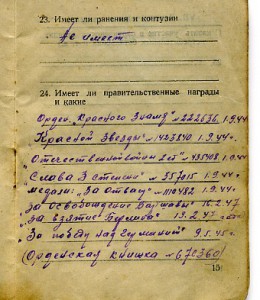 23. Имеет ли ранения и контузии
Не имеет
24. Имеет ли правительственные награды
и какие
Орден „Красного Знамя" № 222636, 1.9.44г.
„Красной Звезды" № 1423840 1.9.44г.
„Отечественной войны 2 ст" № 435408 1.9.44г.
„Слава 3 степени" № 357015 1.9.44г.
медали: „За отвагу" № 1110482 1.9.44г.
„За освобождение Варшавы" 16.2.47
„За взятие Берлина" 19.2.47
„За победу над Германией" 9.5.45г.
(Орденская книжка № 672360)
15